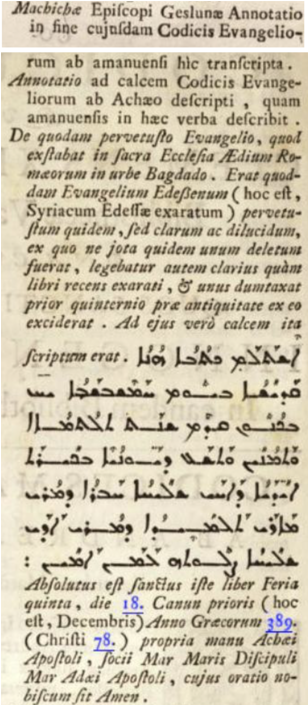 Machichæ Episcopi Geslunæ Annotatio
in fine cujuſdam Codicis Evangelio-
rum ab amanuenſi hìc tranſcripta.
Annotatio ad calcem Codicis Evange-
liorum ab Achæo deſcripti , quam
amanuenſis in hæc verba deſcribit .
De quodam pervetuſto Evangelio, quod
exſtabat in ſacra Eccleſia Ædium Ro-
mæorum in urbe Bagdado . Erat quod-
dam Evangelium Edeßenum ( hoc eſt ,
Syriacum Edeſſæ exaratum ) pervetu-
ſtum quidem , ſed clarum ac dilucidum,
ex quo ne jota quidem unum deletum
fuerat , legebatur autem clarius quàm
libri recens exarati , & unus dumtaxat
prior quinternio præ antiquitate ex eo
exciderat . Ad ejus verò calcem ita
ſcriptum erat . ܐܫܬܠܡ ܟܬܒܐ ܗܢܐ
ܩܕܝܫܐ ܒܝܘܡ ܚܡܫܒܫܒܐ ܝܚ
ܒܟܢܘܢ ܩܕܡ ܫܢܬ ܬܠܬܡܐܐ
ܘܬܡܢܝܢ ܘܬܫܥ ܕܝܘܢܝܐ
ܐܝܕܐ ܕܐܚܝ ܫܠܝܚܐ ܚܒܪܐ ܕܡܪܝ
ܡܐܪܝ ܬܠܡܝܕܐ ܕܡܪܝ ܐܕܝ
ܫܠܝܚܐ ܨܠܘܬܗ ܥܡܢ ܐܡܝܢ :
Abſolutus eſt ſanctus iſte liber Feria
quinta, die 18. Canun prioris ( hoc
eſt , Decembris) Anno Græcorum 389.
( Chriſti 78. ) propria manu Achæi
Apoſtoli , ſocii Mar Maris Diſcipuli
Mar Adæi Apoſtoli, cujus oratio no-
biſcum ſit Amen .